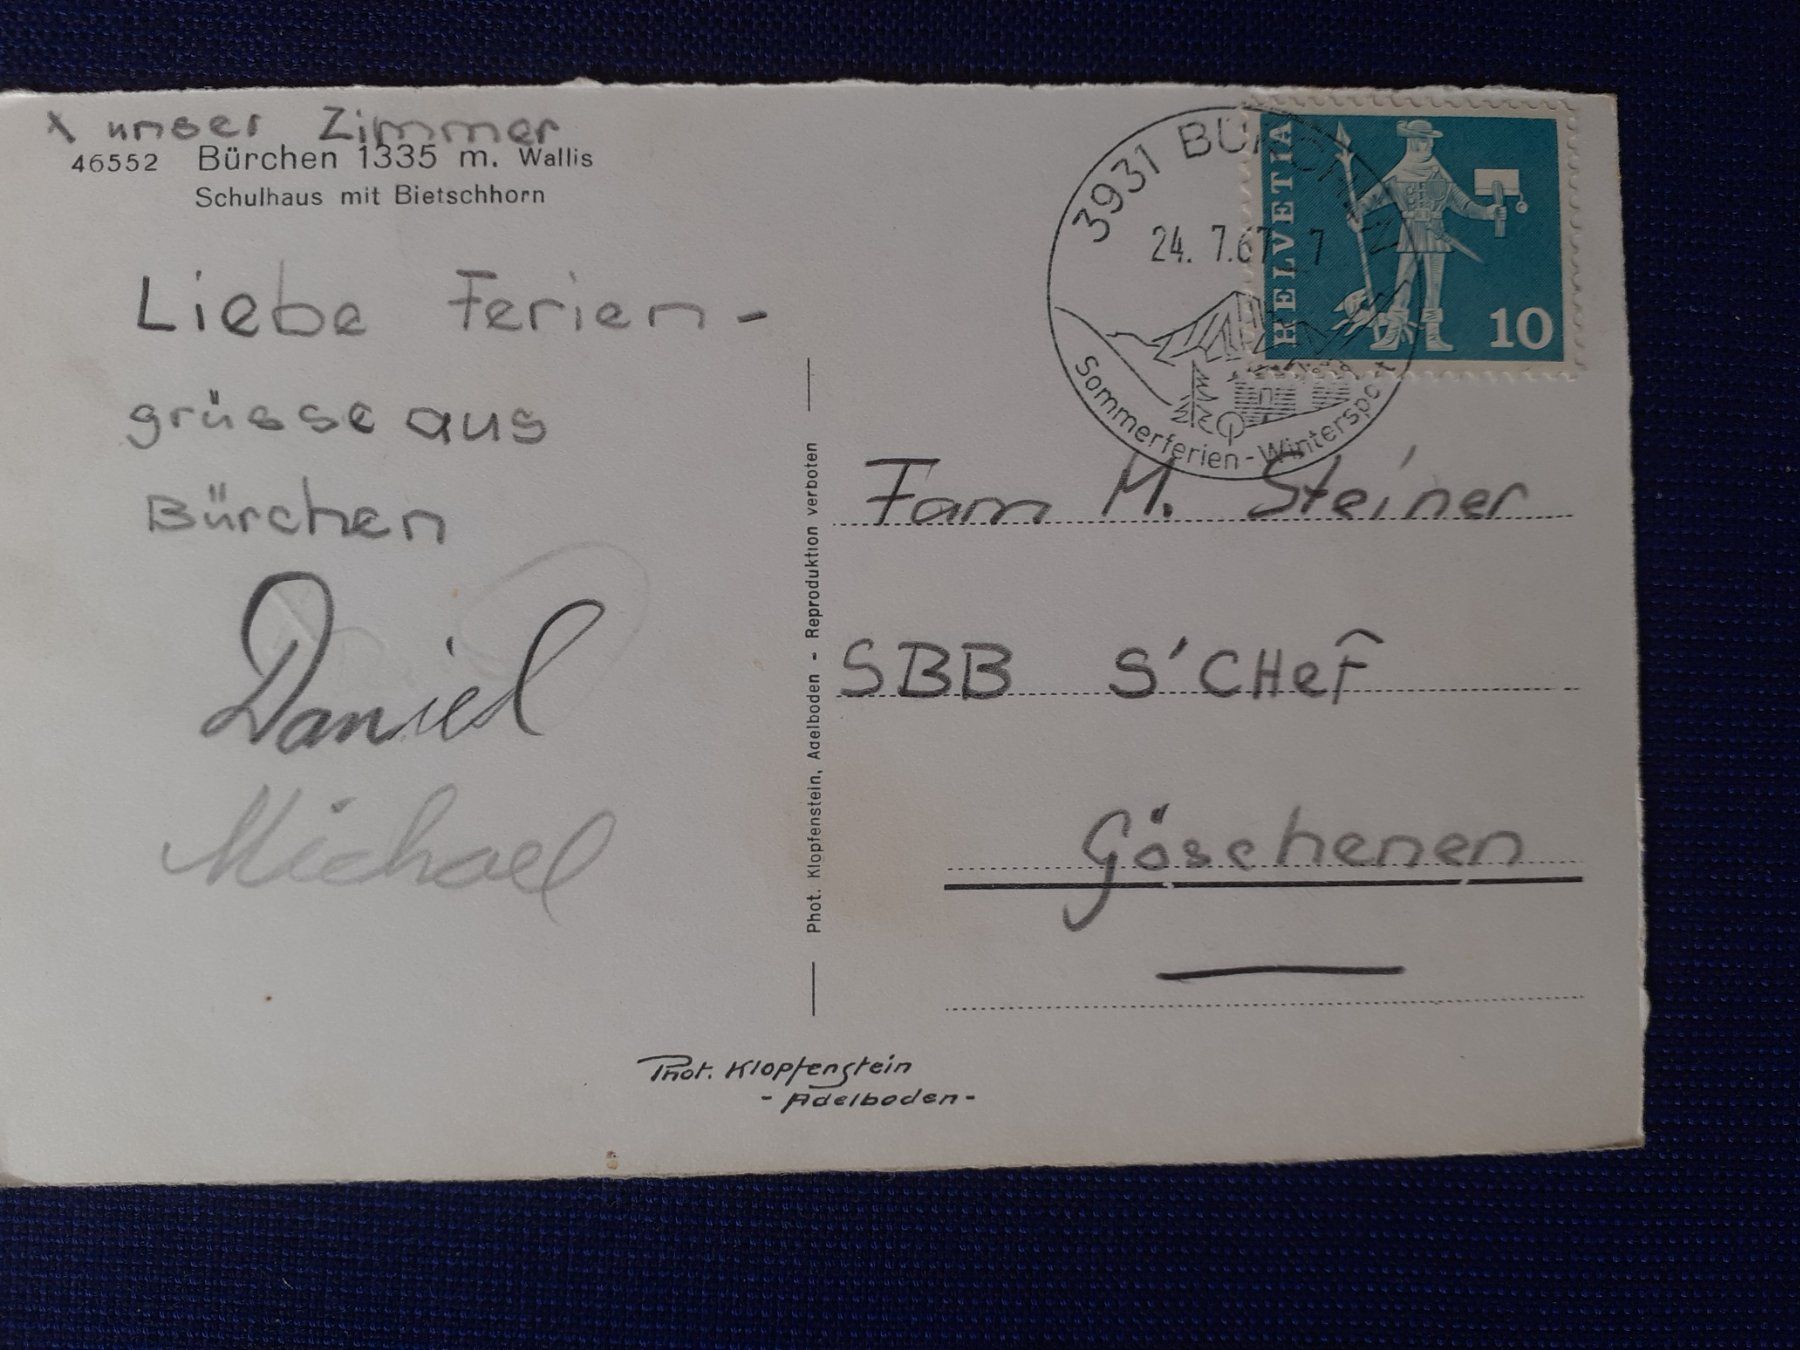 x unser Zimmer
46552 Bürchen 1335 m. Wallis
Schulhaus mit Bietschhorn
Liebe Ferien-
grüsse aus
Bürchen
Daniel
Michael
Phot. Klopfenstein, Adelboden - Reproduktion verboten
Phot. Klopfenstein
- Adelboden -
3931 BÜRCHEN
24. 7.67 - 7
Sommerferien - Wintersport
HELVETIA
10
Fam M. Steiner
SBB S'CHeF
Göschenen